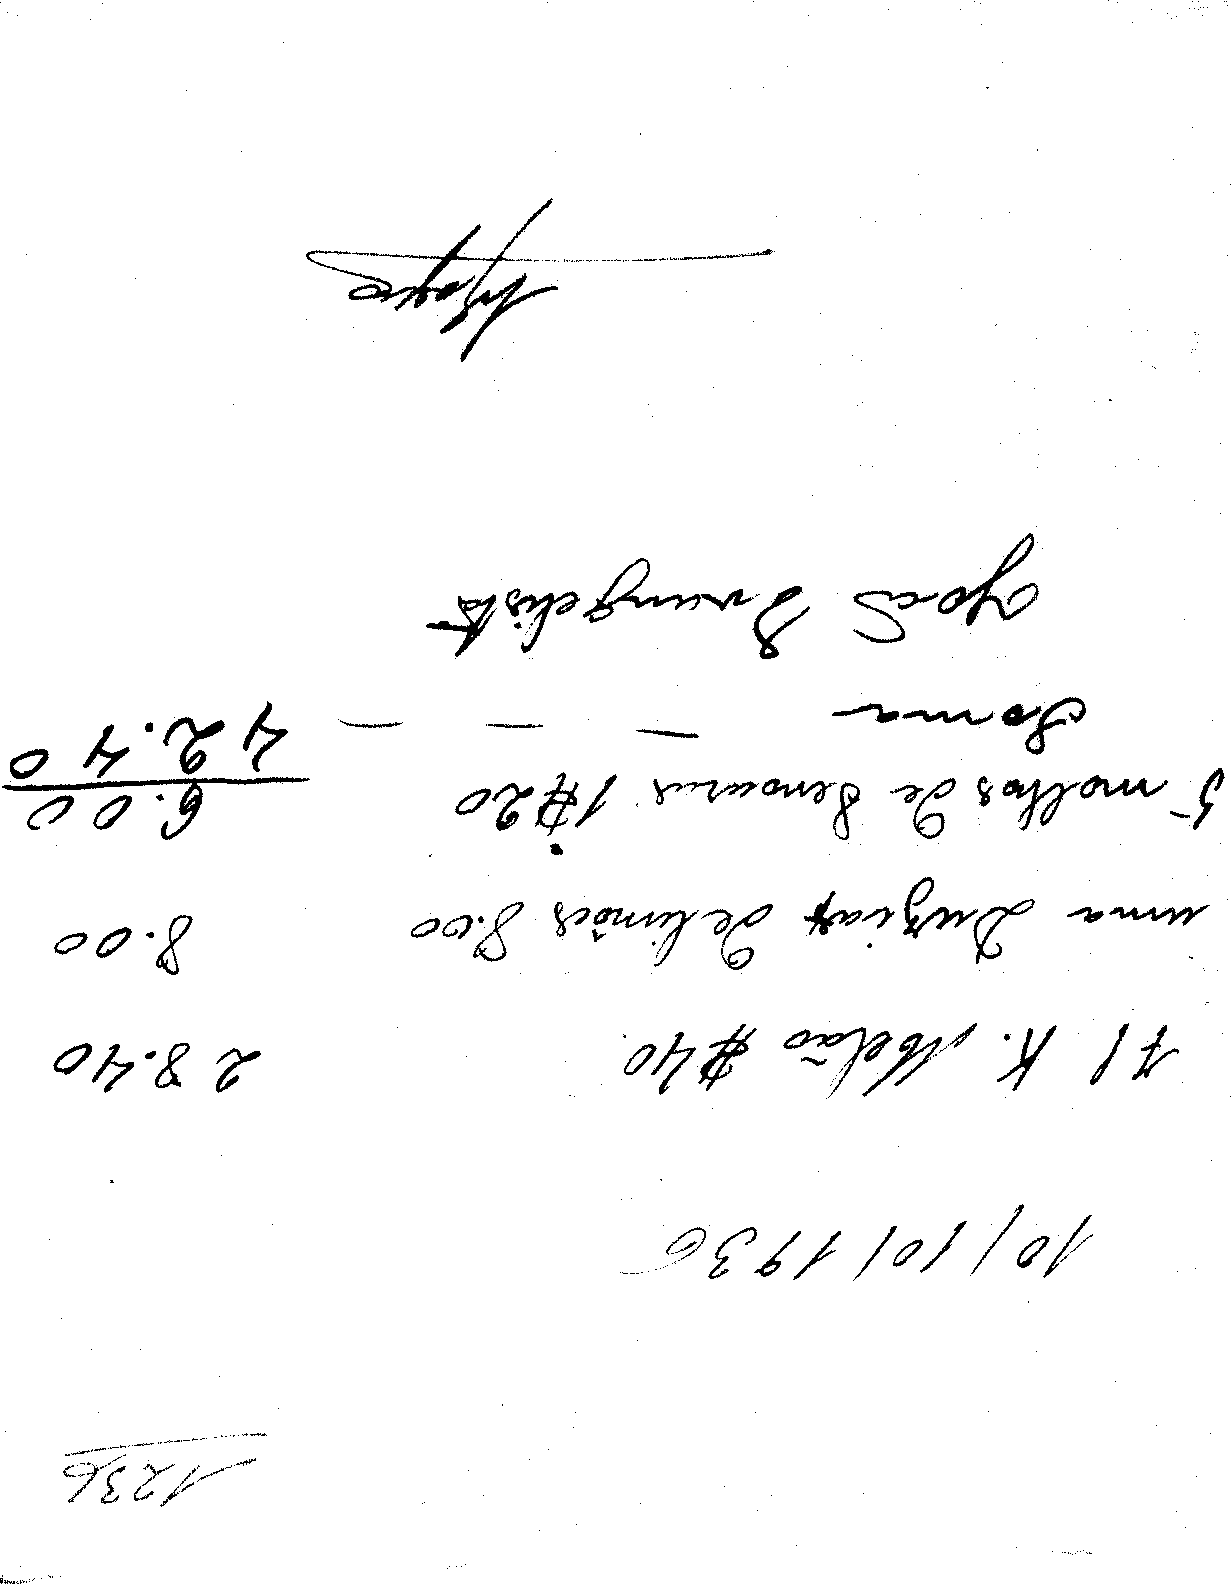 1236
10/10/1936
71 K. Melão $40 28.40
uma Duzias de limões 8.00 8.00
5 molhos de Senouras 1$20 6.00
Soma — — — 42.40
João Evangelista